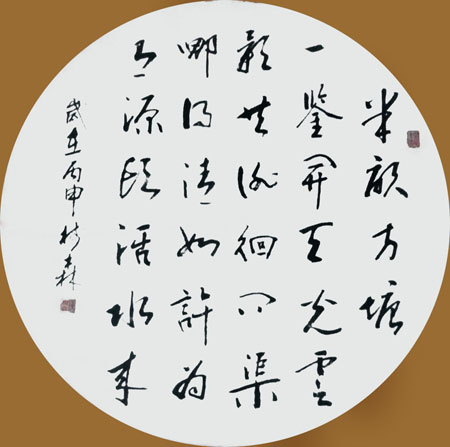 半畝方塘
一鑒開天光雲
影共徘徊問渠
哪得清如許為
有源頭活水來
歲在丙申 森